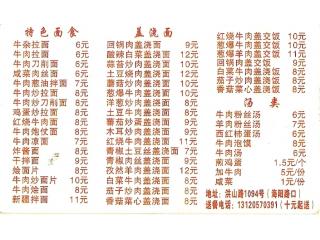 特色面食
牛杂拉面 6元
牛肉拉面 6元
牛肉刀削面 6元
咸菜肉丝面 6元
牛肉葱油拌面 7元
牛肉炒拉面 8元
牛肉炒刀削面 8元
鸡蛋炒拉面 8元
红烧牛肉面 8元
牛肉炮仗面 8元
牛肉凉面 7元
炸酱面 8元
干拌面 9元
牛肉炒面片 10元
牛肉烩面 8元
新疆拌面 11元
盖浇面
回锅肉盖浇面 9元
酸辣白菜盖浇面 12元
土豆烧肉盖浇面 12元
蒜苔炒肉盖浇面 12元
蘑菇炒肉盖浇面 12元
葱爆牛羊盖浇面 10元
洋葱炒肉盖浇面 12元
土豆丝盖浇面 8元
番茄炒蛋盖浇面 9元
木耳炒肉盖浇面 9元
青椒土豆盖浇面 9元
青椒肉丝盖浇面 12元
孜然羊肉盖浇面 12元
白菜牛肉盖浇面 7元
茄子炒肉盖浇面 12元
香菇菜心盖浇面 7元
红烧牛肉盖交饭 10元
葱爆牛肉盖交饭 10元
葱爆羊肉盖交饭 11元
回锅肉盖交饭 9元
白菜牛肉盖交饭 8元
茄子炒肉盖交饭 8元
香菇菜心盖交饭 8元
汤 类
牛肉粉丝汤 6元
羊肉粉丝汤 7元
西红柿蛋汤 6元
牛肉泡馍 6元
牛肉汤 6元
煎鸡蛋 1.5元/个
加牛肉 5元/份
咸菜 1元/份
地址:洪山路1094号(海阳路口)
送餐电话:13120570391(十元起送)